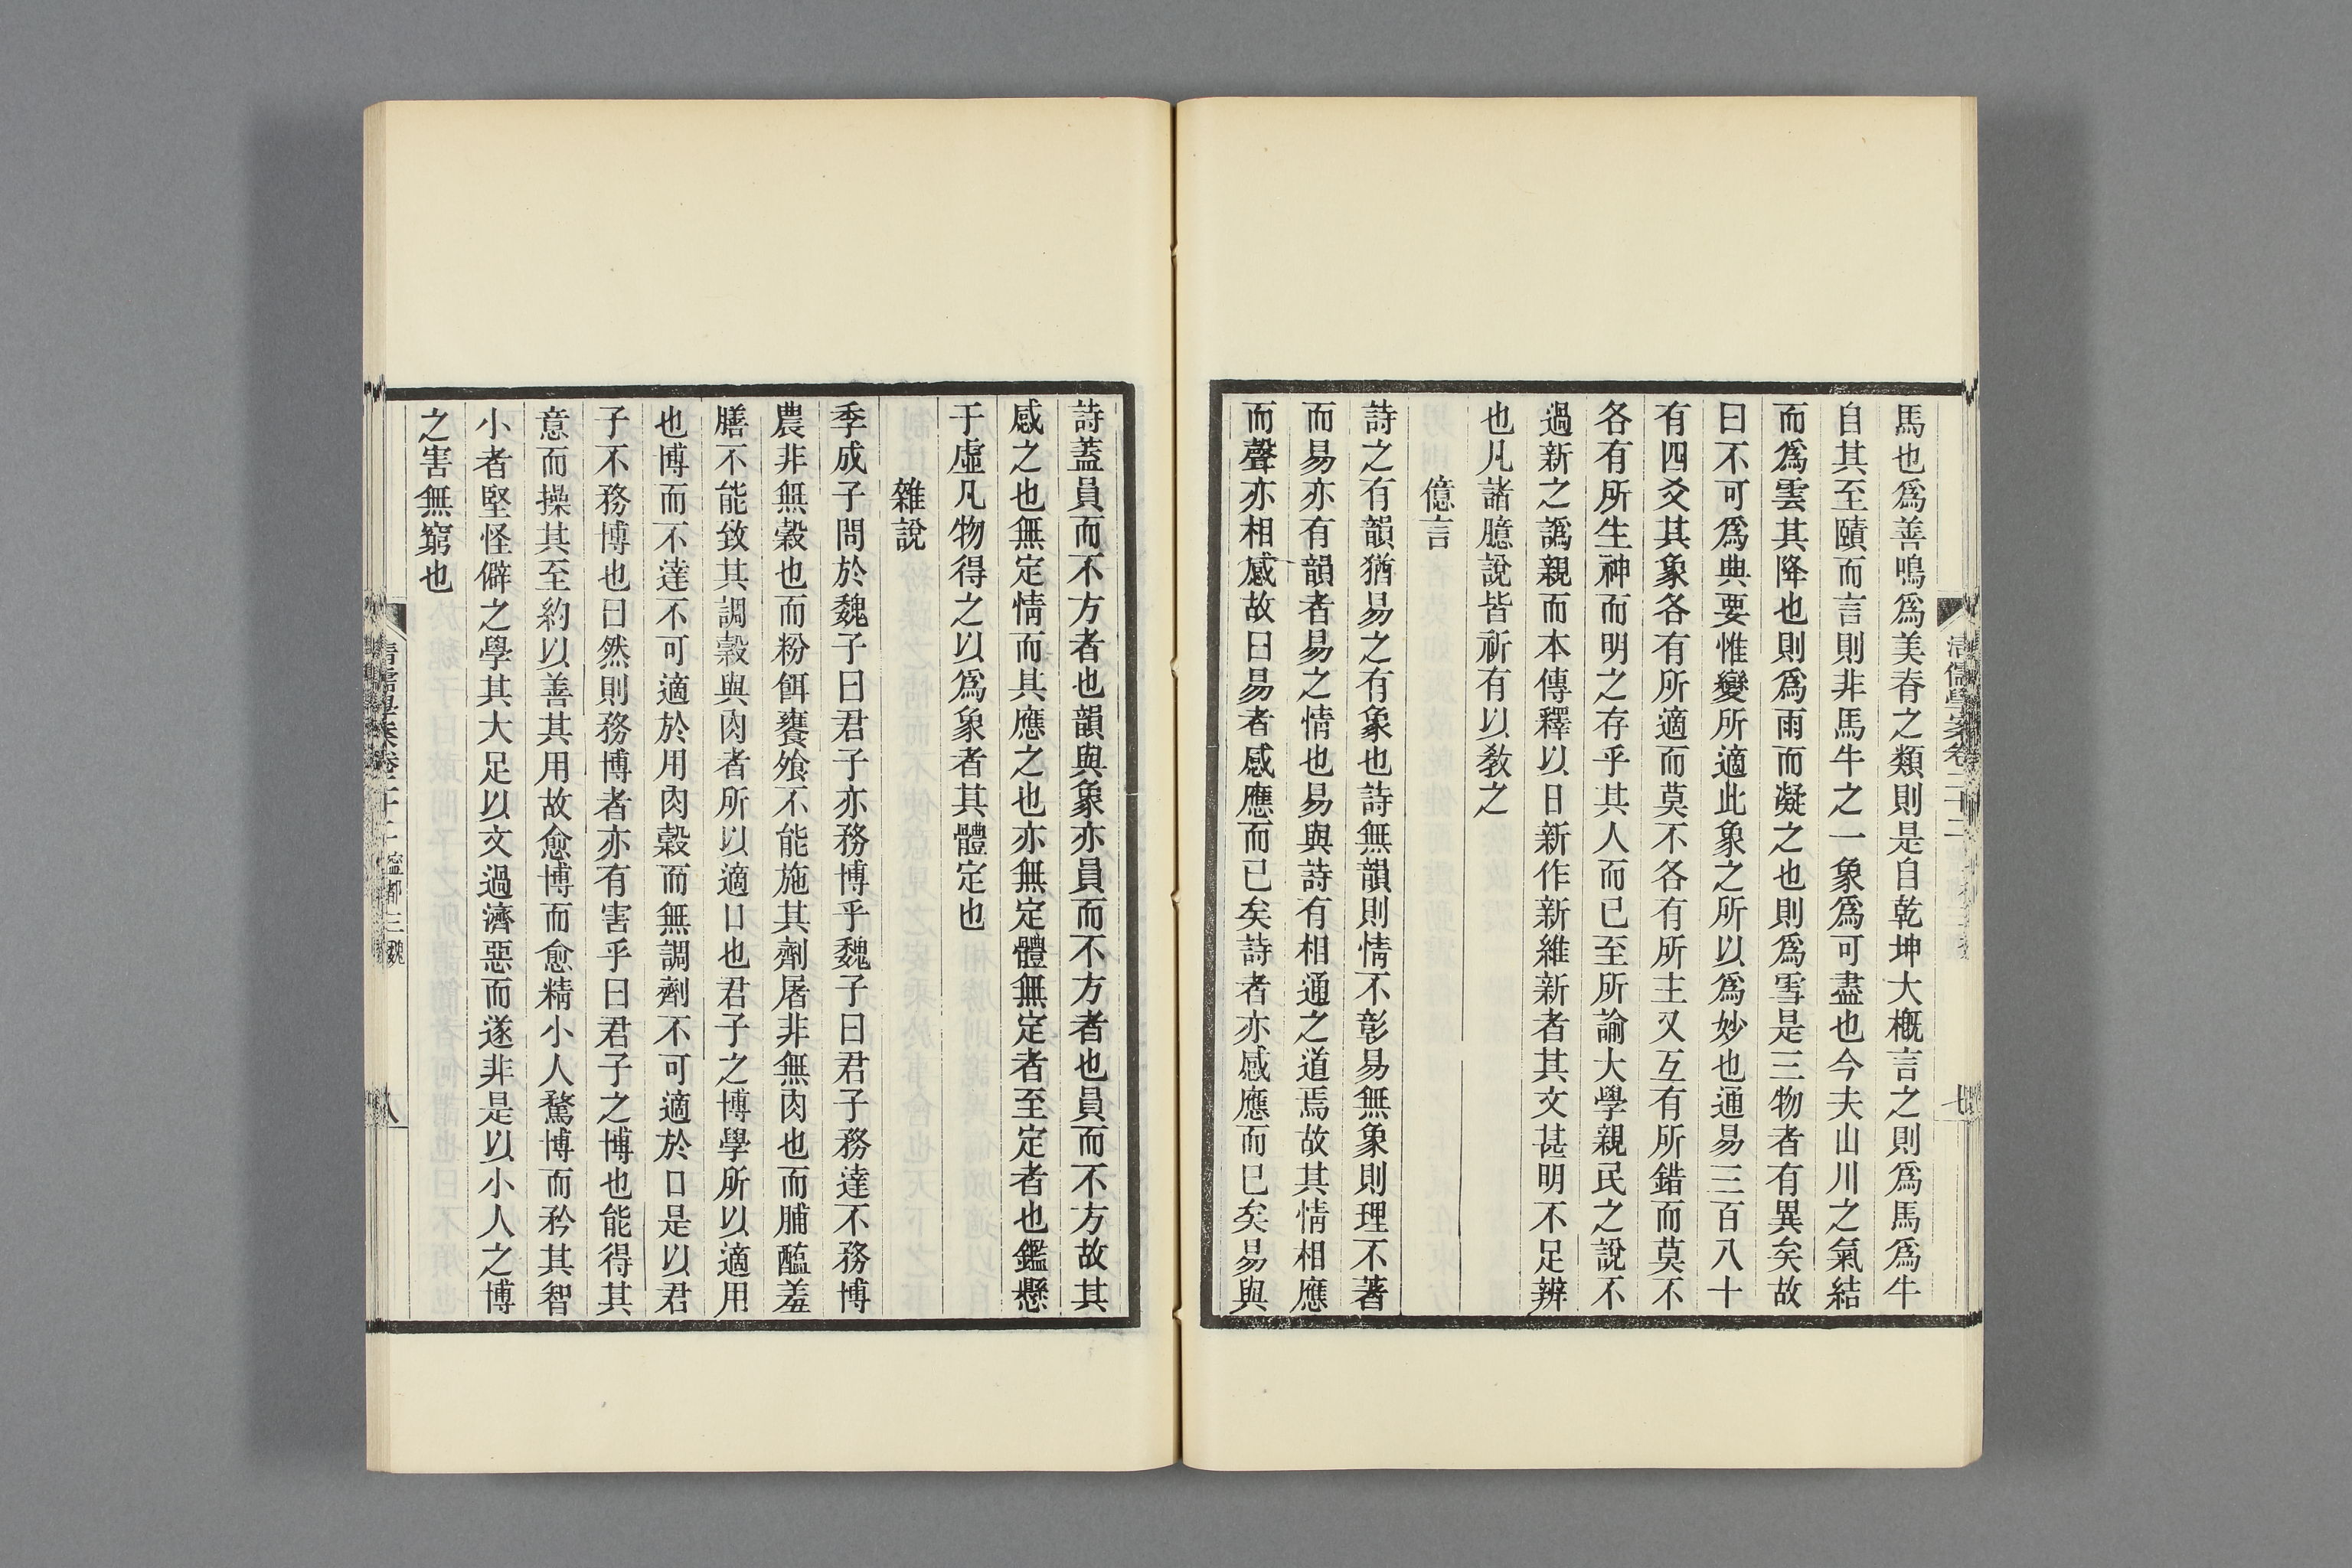 馬也爲善鳴爲美脊之類則是自乾坤大槪言之則爲馬爲牛
自其至賾而言則非馬牛之一象爲可盡也今夫山川之氣結
而爲雲其降也則爲雨而凝之也則爲雪是三物者有異矣故
曰不可爲典要惟變所適此象之所以爲妙也通易三百八十
有四爻其象各有所適而莫不各有所主又互有所錯而莫不
各有所生神而明之存乎其人而已至所論大學親民之說不
過新之譌親而本傳釋以日新作新維新者其文甚明不足辨
也凡諸臆說皆祈有以敎之
億言
詩之有韻猶易之有象也詩無韻則情不彰易無象則理不著
而易亦有韻者易之情也易與詩有相通之道焉故其情相應
而聲亦相感故曰易者感應而已矣詩者亦感應而已矣易與
清儒學案卷二十二
七
詩蓋員而不方者也韻與象亦員而不方者也員而不方故其
感之也無定情而其應之也亦無定體無定者至定者也鑑懸
于虛凡物得之以爲象者其體定也
雜說
季成子問於魏子曰君子亦務博乎魏子曰君子務達不務博
農非無穀也而粉餌饔飧不能施其劑屠非無肉也而脯醢羞
膳不能致其調穀與肉者所以適口也君子之博學所以適用
也博而不達不可適於用肉穀而無調劑不可適於口是以君
子不務博也曰然則務博者亦有害乎曰君子之博也能得其
意而操其至約以善其用故愈博而愈精小人騖博而矜其智
小者堅怪僻之學其大足以文過濟惡而遂非是以小人之博
之害無窮也
清儒學案卷二十二 寧都三魏
八